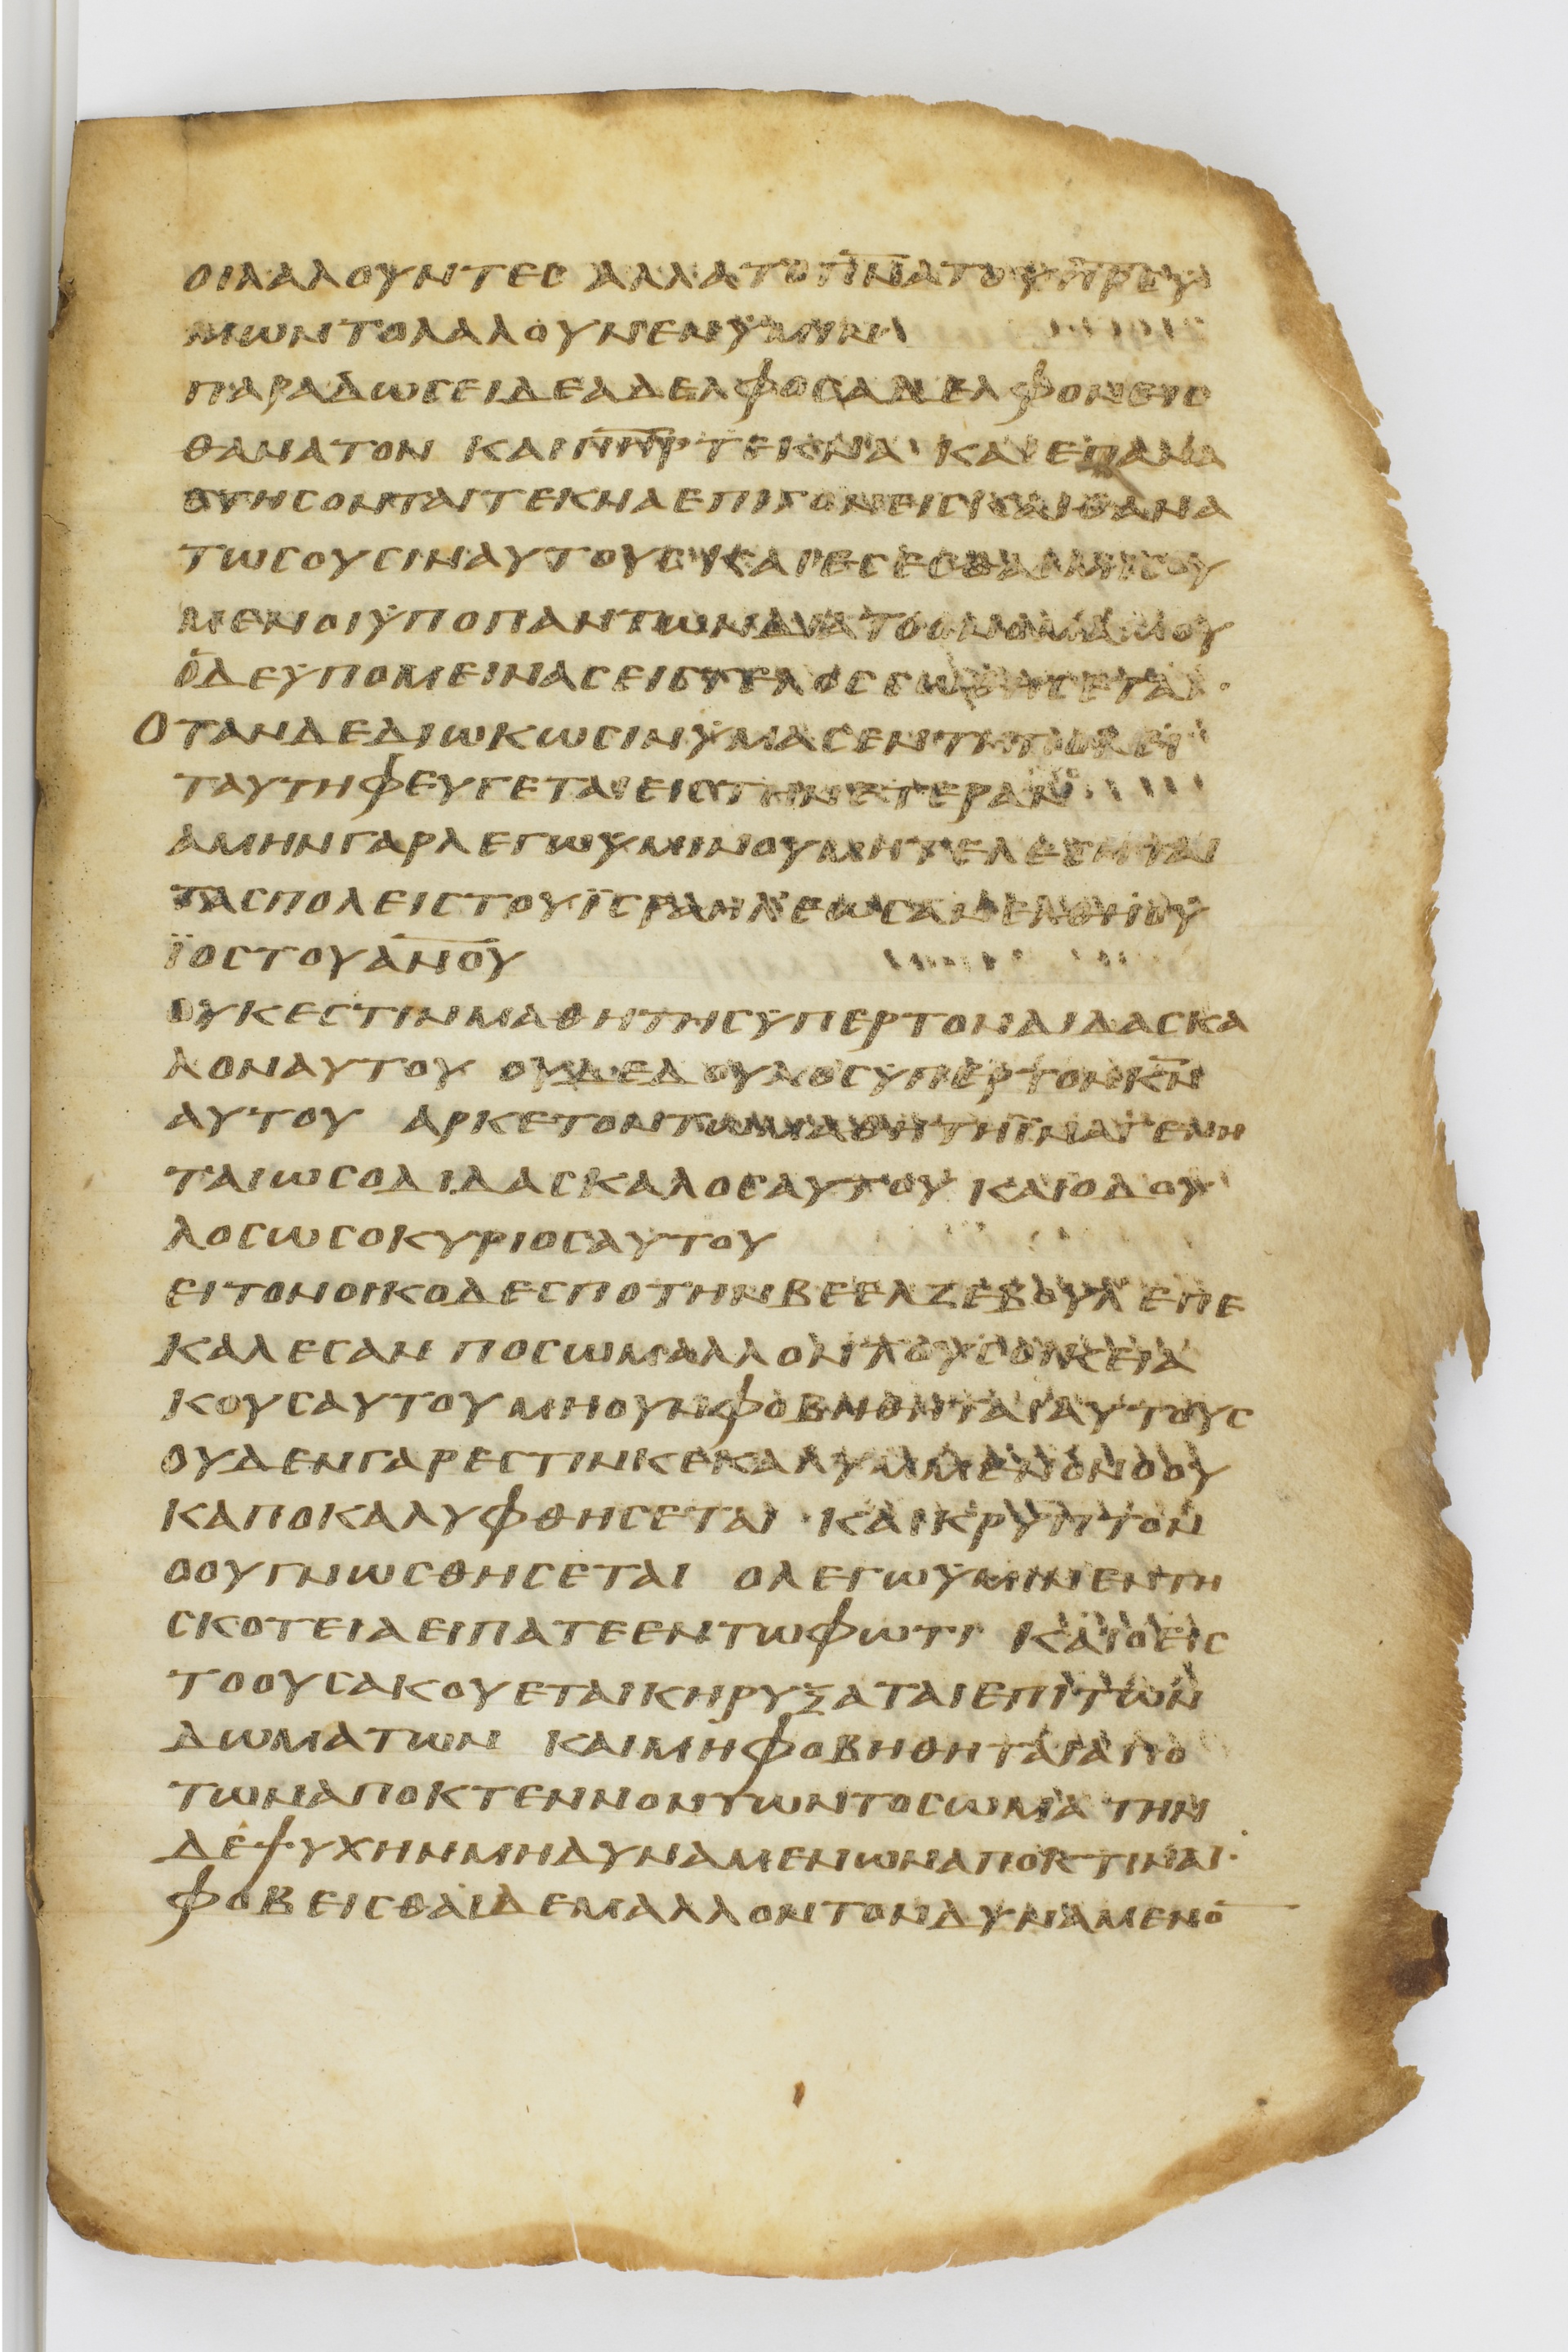 ΟΙΛΑΛΟΥΝΤΕΣ ΑΛΛΑΤΟΠΝΑΤΟΥΠΡΣΥ
ΜΩΝΤΟΛΑΛΟΥΝΕΝΥΜΙΝ
ΠΑΡΑΔΩΣΕΙΔΕΑΔΕΛΦΟΣΑΔΕΛΦΟΝΕΙΣ
ΘΑΝΑΤΟΝ ΚΑΙΠΗΡΤΕΚΝΑ ΚΑΙΕΠΑΝΑ
ΣΤΗΣΟΝΤΑΙΤΕΚΝΑΕΠΙΓΟΝΕΙΣΚΑΙΘΑΝΑ
ΤΩΣΟΥΣΙΝΑΥΤΟΥΣ ΚΑΙΕΣΕΣΘΑΙΜΙΣΟΥ
ΜΕΝΟΙΥΠΟΠΑΝΤΩΝΔΙΑΤΟΟΝΟΜΑΜΟΥ
ΟΔΕΥΠΟΜΕΙΝΑΣΕΙΣΤΕΛΟΣΣΩΘΗΣΕΤΑΙ·
ΟΤΑΝΔΕΔΙΩΚΩΣΙΝΥΜΑΣΕΝΤΗΠΟΛΕΙ
ΤΑΥΤΗΦΕΥΓΕΤΑΙΕΙΣΤΗΝΕΤΕΡΑΝ
ΑΜΗΝΓΑΡΛΕΓΩΥΜΙΝΟΥΜΗΤΕΛΕΣΗΤΑΙ
ΤΑΣΠΟΛΕΙΣΤΟΥΪΣΡΑΗΛΕΩΣΑΝΕΛΘΗΟΥ
ΪΟΣΤΟΥΑΝΟΥ
ΟΥΚΕΣΤΙΝΜΑΘΗΤΗΣΥΠΕΡΤΟΝΔΙΔΑΣΚΑ
ΛΟΝΑΥΤΟΥ ΟΥΔΕΔΟΥΛΟΣΥΠΕΡΤΟΝΚΝ
ΑΥΤΟΥ ΑΡΚΕΤΟΝΤΩΜΑΘΗΤΗΪΝΑΓΕΝΗ
ΤΑΙΩΣΟΔΙΔΑΣΚΑΛΟΣΑΥΤΟΥ ΚΑΙΟΔΟΥ
ΛΟΣΩΣΟΚΥΡΙΟΣΑΥΤΟΥ
ΕΙΤΟΝΟΙΚΟΔΕΣΠΟΤΗΝΒΕΕΛΖΕΒΟΥΛ ΕΠΕ
ΚΑΛΕΣΑΝ ΠΟΣΩΜΑΛΛΟΝΤΟΥΣΟΙΚΕΙΑ
ΚΟΥΣΑΥΤΟΥΜΗΟΥΝΦΟΒΗΘΗΤΑΙΑΥΤΟΥΣ
ΟΥΔΕΝΓΑΡΕΣΤΙΝΚΕΚΑΛΥΜΜΕΝΟΝΟΟΥ
ΚΑΠΟΚΑΛΥΦΘΗΣΕΤΑΙ · ΚΑΙΚΡΥΠΤΟΝ
ΟΟΥΓΝΩΣΘΗΣΕΤΑΙ ΟΛΕΓΩΥΜΙΝΕΝΤΗ
ΣΚΟΤΕΙΑΕΙΠΑΤΕΕΝΤΩΦΩΤΙ ΚΑΙΟΕΙΣ
ΤΟΟΥΣΑΚΟΥΕΤΑΙΚΗΡΥΞΑΤΑΙΕΠΙΤΩΝ
ΔΩΜΑΤΩΝ ΚΑΙΜΗΦΟΒΗΘΗΤΑΙΑΠΟ
ΤΩΝΑΠΟΚΤΕΝΝΟΝΤΩΝΤΟΣΩΜΑ ΤΗΝ
ΔΕΨΥΧΗΝΜΗΔΥΝΑΜΕΝΩΝΑΠΟΚΤΙΝΑΙ·
ΦΟΒΕΙΣΘΑΙΔΕΜΑΛΛΟΝΤΟΝΔΥΝΑΜΕΝΟ